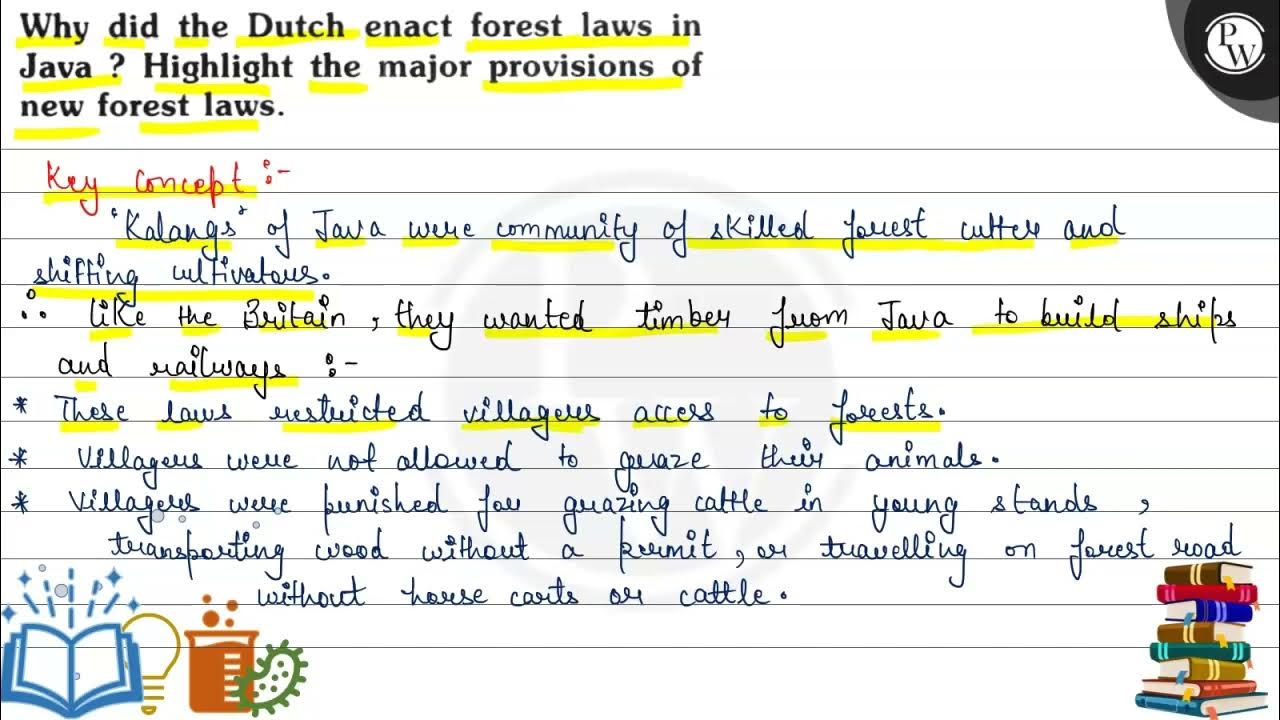 Why did the Dutch enact forest laws in
Java ? Highlight the major provisions of
new forest laws.
PW
Key concept :-
'Kalangs' of Java were community of skilled forest cutter and
shifting cultivators.
∴ like the Britain, they wanted timber from Java to build ships
and railways :-
* These laws restricted villagers access to forests.
* Villagers were not allowed to graze their animals.
* Villagers were punished for grazing cattle in young stands,
transporting wood without a permit, or travelling on forest road
without horse carts or cattle.